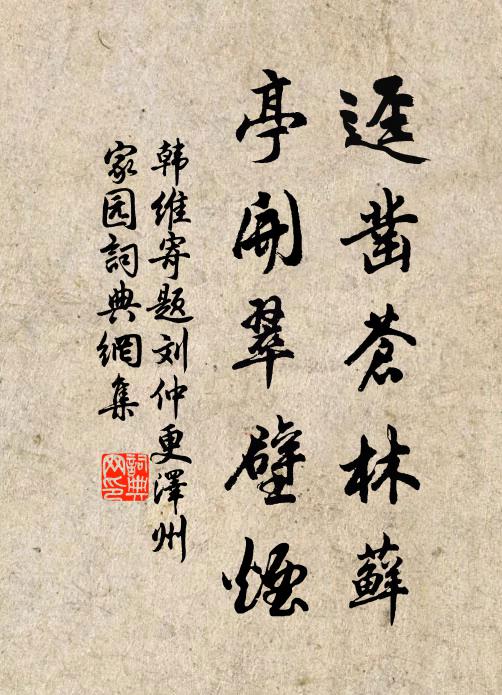 迳凿苍林藓
亭开翠壁烟
韩维寄题刘仲更澤州
家园詞典網集
詞典網印